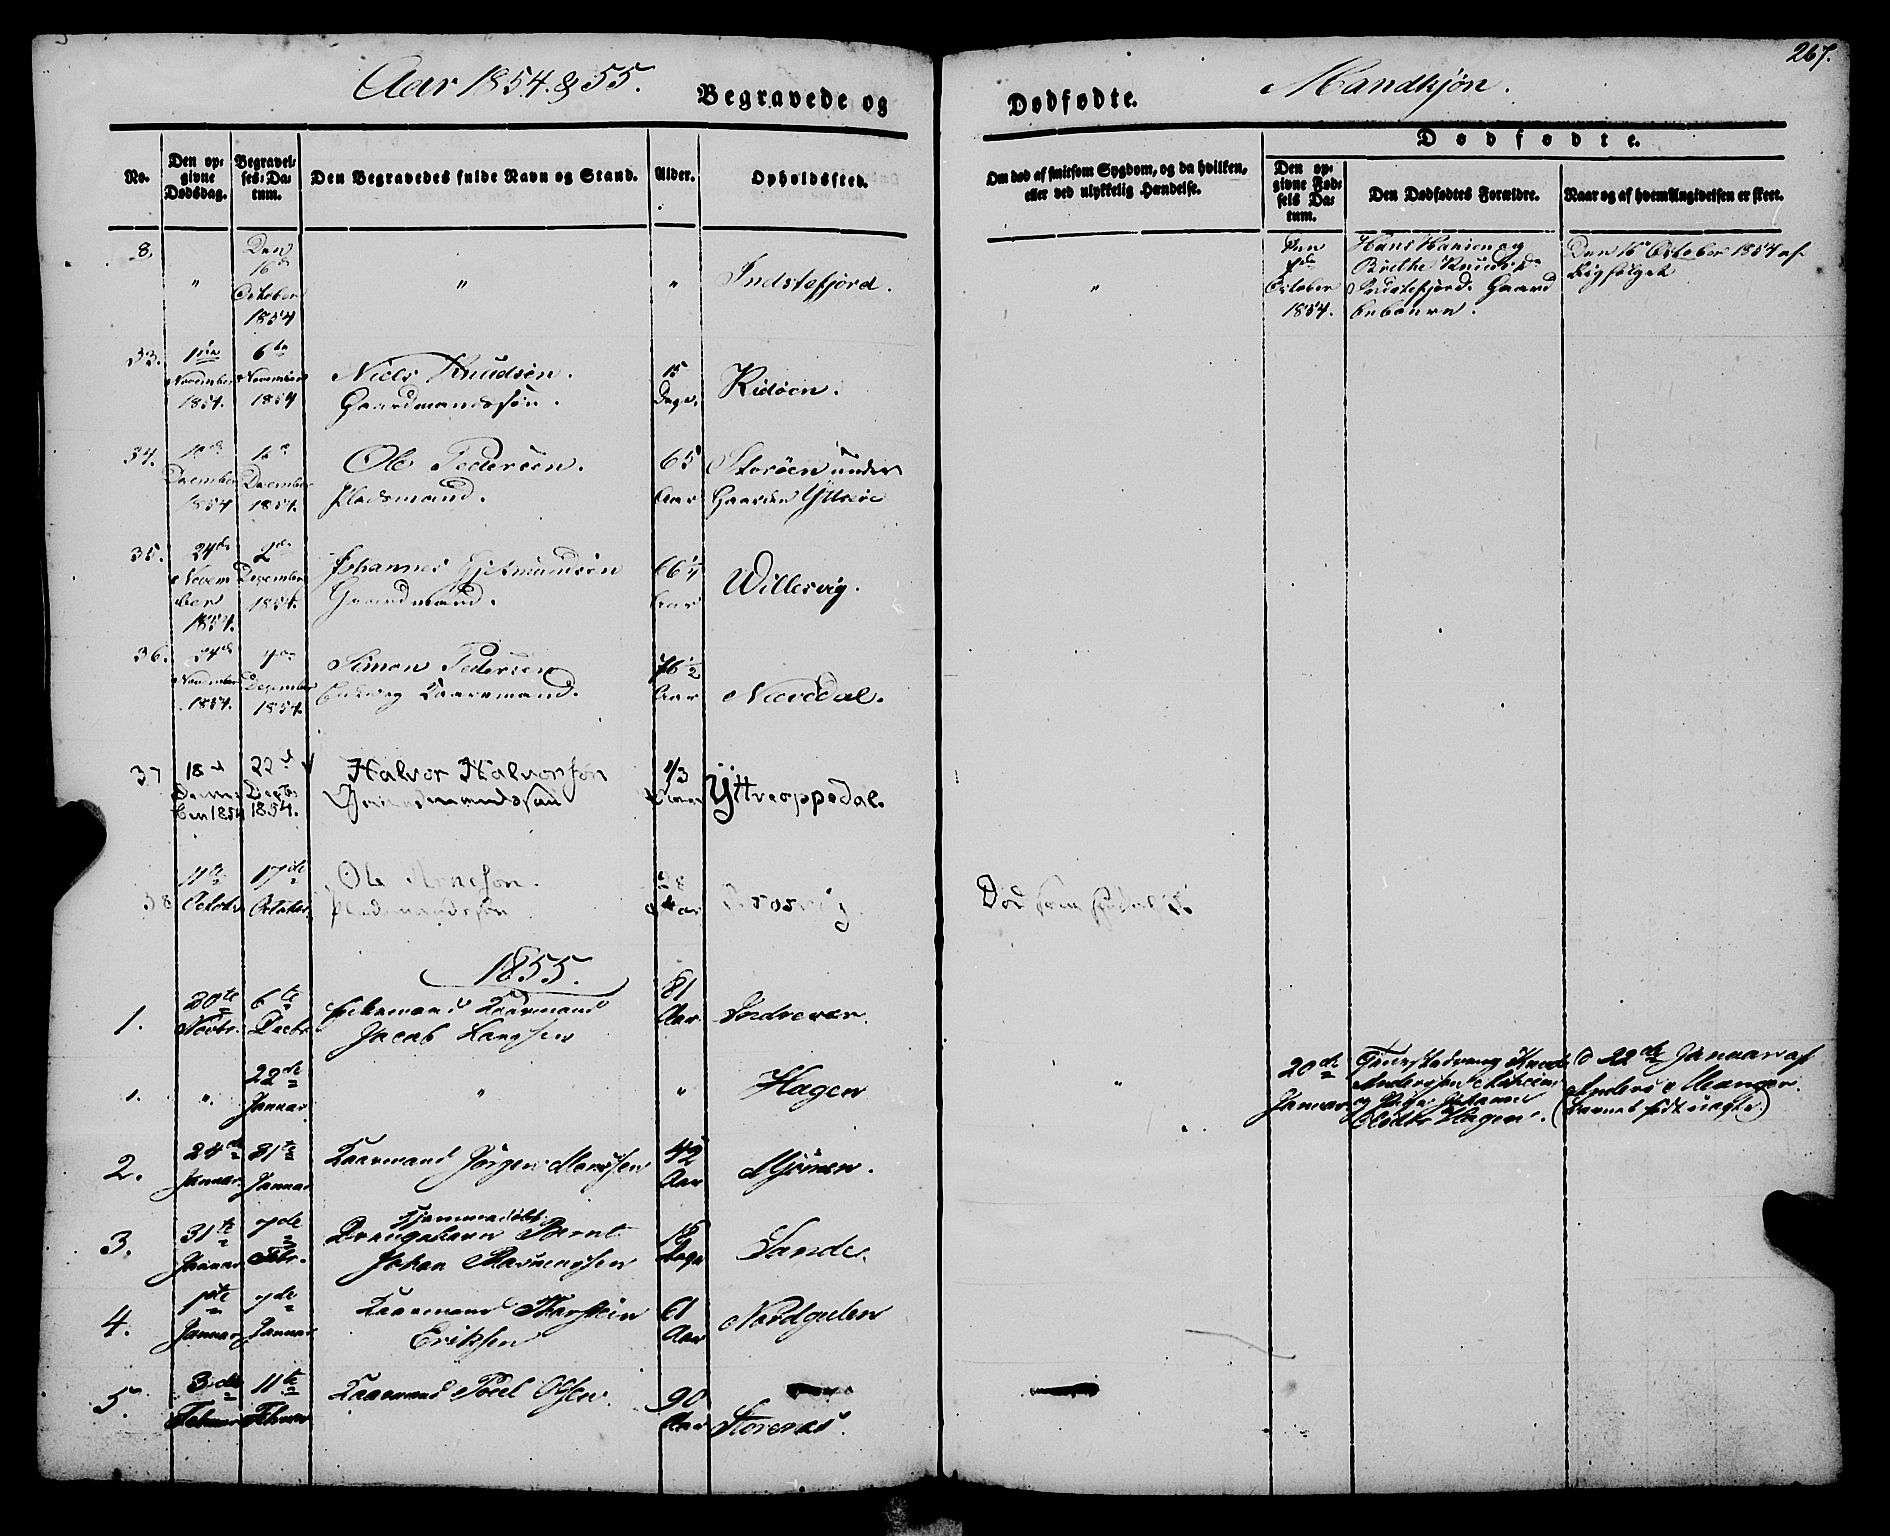 267.
Aar 1854. & 55.
Begravede og
Dødfødte.
Mandkjøn.
No.
Den op-
givne
Dødsdag.
Begravel-
ses-Da-
tum.
Den Begravedes fulde Navn og Stand.
Alder.
Opholdssted.
Om død af smitsom Sygdom, og da hvilken,
eller ved ulykkelig Hændelse.
Dødfødte.
Den op-
givne Fød-
sels Da-
tum.
Den Dødfødtes Forældre.
Naar og af hvem Angivelsen er skeet.
8.
"
Den
16de
October
1854
"
"
Indstefjord.
"
Den
October
1854.
Hans Hansen og
Brithe Knudsd.
Indstefjord. Gaard
Den 16de October 1854 af
33.
November
1854.
6te
November
1854
Niels Knudsen.
Gaardmandssøn.
15
Dage.
Ridöen.
34.
December
1854
December
1854.
Ole Pedersen.
Pladsmand.
65
Aar
Storöen under
Gaarden Ytteröe
35.
24de
Novem
ber
1854.
2den
December
1854.
Johannes Gjetmundsen
Gaardmand.
66 1/4
Aar
Willesvig.
36.
24de
November
1854.
December
1854.
Simon Pedersen
Gaardmand.
76 1/2
Aar
Nævedal.
37
18de
Decem
ber 1854
22de
Decbr
1854.
Halvor Halvorsøn
Gaardmandssøn
Yttreoppedal.
38
11te
October
17de
October
Ole Arnesøn.
Pladsmandssøn
28
Aar
1855.
1.
30te
Novbr.
6te
Decbr.
Føderaadsmand Gaardmand
Jacob Larssen
81
Aar
Indrevær.
1.
"
22de
Januar
"
"
Hagen
"
20de
Januar
Andersen
Hagen.
d 22de Januar af
Anders Manger.
2.
24de
Januar
31te
Januar
Gaardmand Jørgen Monssen
42
Aar
Mjömen.
3.
31te
Januar
7de
Febr.
Hjemmedøbt
Drengebarn Bernt
Johan Rasmussen
18
Dage
Sande.
4.
1ste
Januar
7de
Januar
Gaardmand Thorstein
Eriksen
61
Aar
Nordgulen
5.
3de
Februar
11te
Februar
Gaardmand Poul Olsen.
90
Aar
Storenæs.